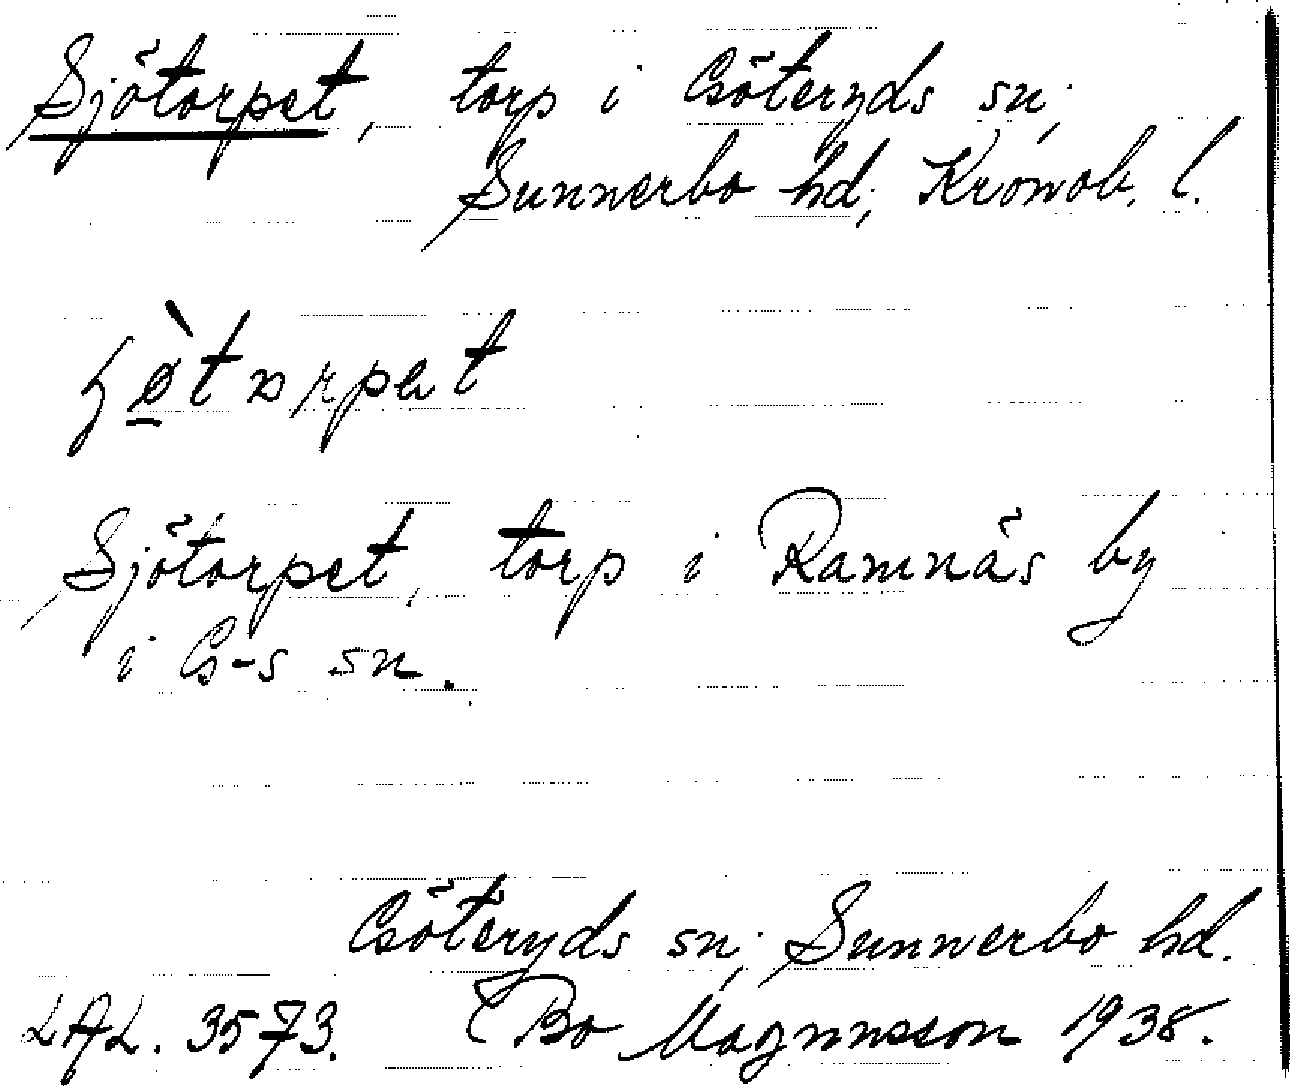 Sjötorpet, torp i Göteryds sn;
Sunnerbo hd; Kronob. l.
Sjötorpet, torp i Ramnäs by
i G-s sn.
Göteryds sn; Sunnerbo hd.
LAL. 3573. Bo Magnusson 1938.